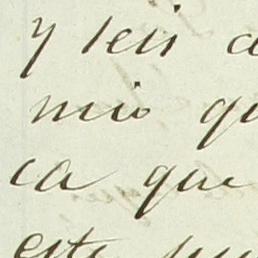 y leis
mio
ca que
este